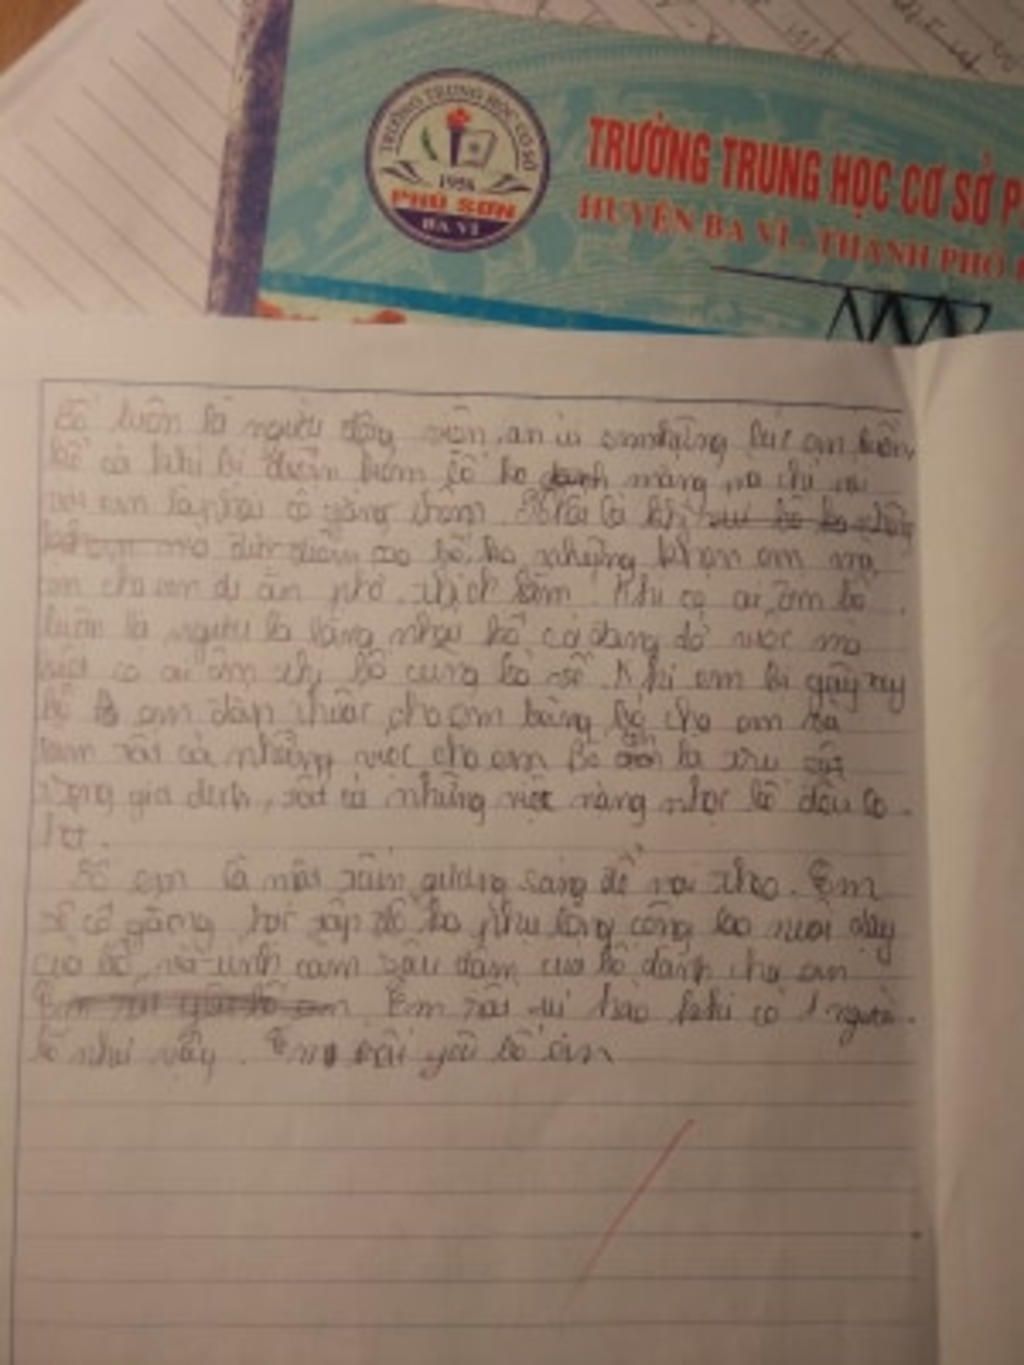 TRƯỜNG TRUNG HỌC CƠ SỞ
1958
PHÚ SƠN
BA VÌ
TRƯỜNG TRUNG HỌC CƠ SỞ P
HUYỆN BA VÌ - THÀNH PHỐ
Bố luôn là người động viên, an ủi em những lúc em buồn
kể cả khi bị điểm kém bố ko mắng mà chỉ
em là phải cố gắng thêm.
bố ko những khen em mà
còn cho em đi ăn phở thích lắm. Khi có ai ốm bố
luôn là người lo lắng nhất bố có đang dở việc mà
có ai ốm thì bố cũng bỏ về. Khi em bị gãy tay
bố em đắp thuốc cho em băng bó cho em và
làm tất cả những việc cho em Bố còn là trụ cột
trong gia đình, tất cả những việc nặng nhọc bố đều lo
hết.
Bố em là một tấm gương sáng để noi theo. Em
sẽ cố gắng học tập để ko phụ lòng công lao nuôi dạy
của bố và tình cảm sâu đậm của bố dành cho em
Em rất tự hào khi có 1 người
bố như vậy. Em rất yêu bố em